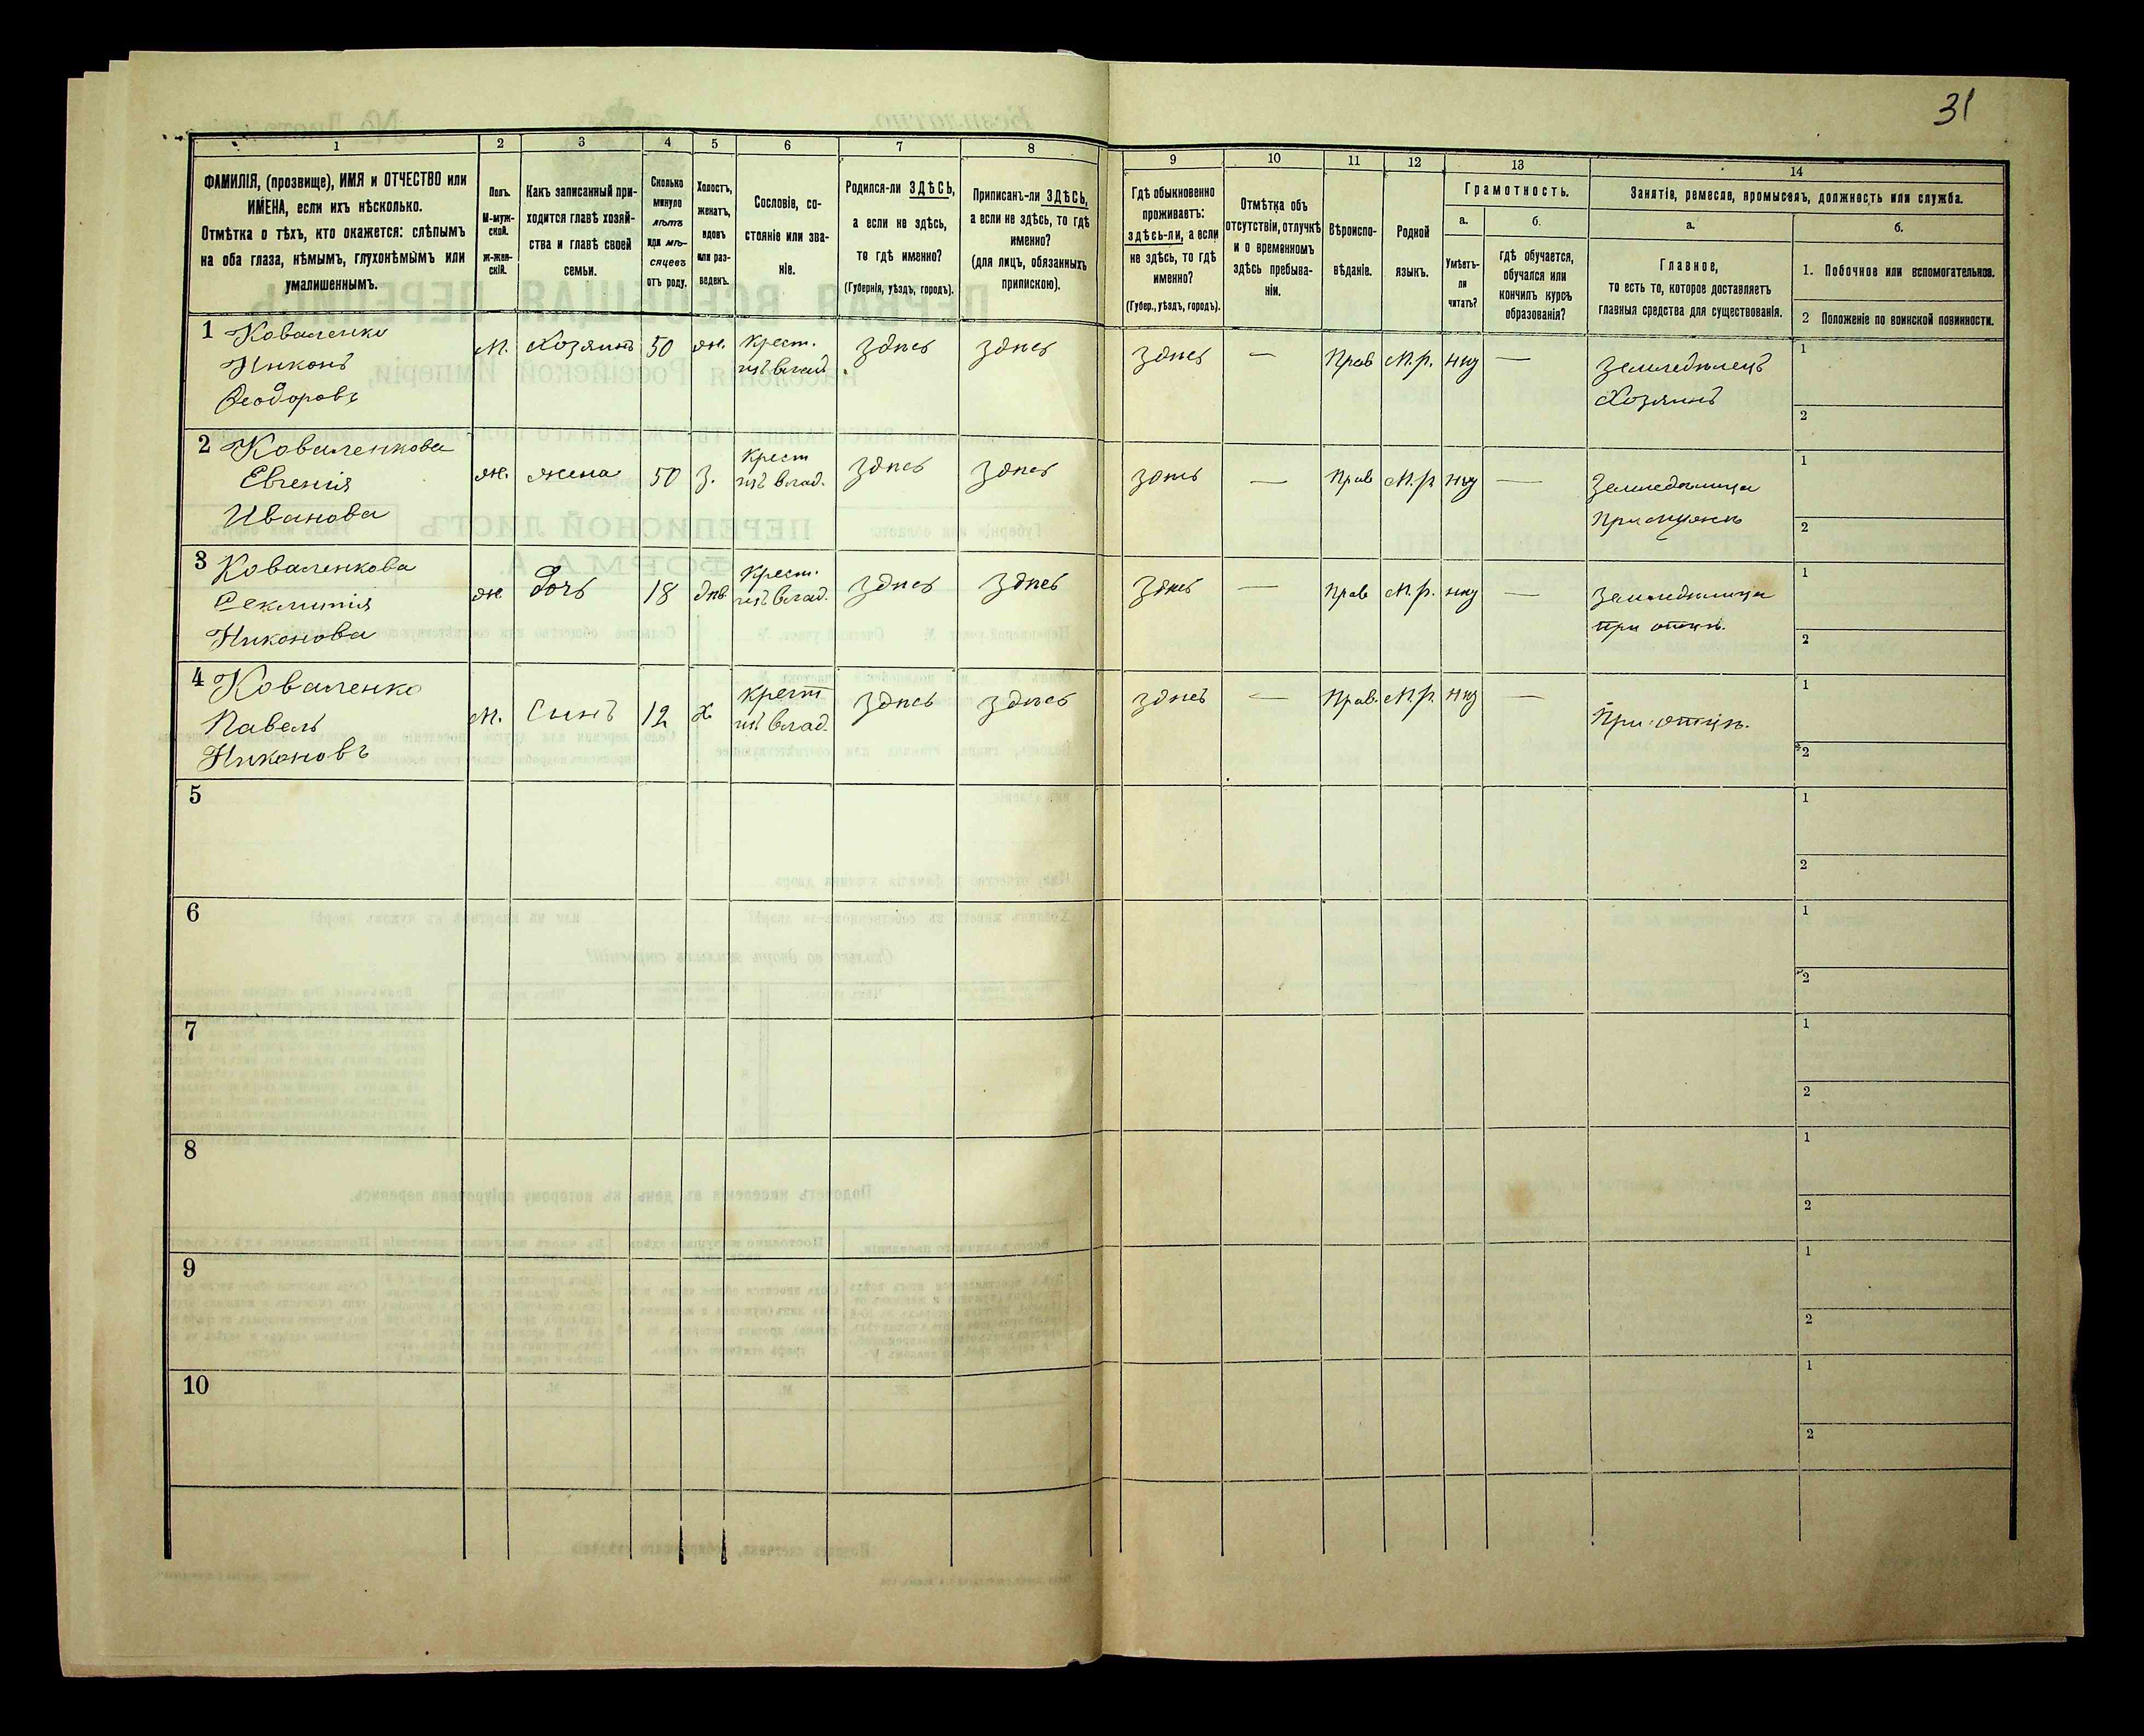 31
1 2 3 4 5 6 7 8 9 10 11 12 13 14
ФАМИЛІЯ, (прозвище), ИМЯ и ОТЧЕСТВО или
ИМЕНА, если ихъ нѣсколько.
Отмѣтка о тѣхъ, кто окажется: слѣпымъ
на оба глаза, нѣмымъ, глухонѣмымъ или
умалишеннымъ.
Полъ.
М-муж-
ской.
ж-жен-
скій.
Какъ записанный при-
ходится главѣ хозяй-
ства и главѣ своей
семьи.
Сколько
минуло
лѣтъ
или мѣ-
сяцевъ
отъ роду.
Холостъ,
женатъ,
вдовъ
или раз-
веденъ.
Сословіе, со-
стояніе или зва-
ніе.
Родился-ли ЗДѢСЬ,
а если не здѣсь,
то гдѣ именно?
(Губернія, уѣздъ, городъ).
Приписанъ-ли ЗДѢСЬ,
а если не здѣсь, то гдѣ
именно?
(для лицъ, обязанныхъ
припискою).
Гдѣ обыкновенно
проживаетъ:
здѣсь-ли, а если
не здѣсь, то гдѣ
именно?
(Губер., уѣздъ, городъ).
Отмѣтка объ
отсутствіи, отлучкѣ
и о временномъ
здѣсь пребыва-
ніи.
Вѣроиспо-
вѣданіе.
Родной
языкъ.
Грамотность.
а.
Умѣетъ-
ли
читать?
б.
гдѣ обучается,
обучался или
кончилъ курсъ
образованія?
Занятіе, ремесло, промыселъ, должность или служба.
а.
Главное,
то есть то, которое доставляетъ
главныя средства для существованія.
б.
1. Побочное или вспомогательное.
2 Положеніе по воинской повинности.
1 Коваленко
Никонъ
Феодоровъ
М. Хозяинъ 50 ж. Крест.
изъ влад. здѣсь здѣсь здѣсь — Прав М.р. нѣт —
Земледѣлецъ
Хозяинъ
1
2
2 Коваленкова
Евгенія
Иванова
ж. жена 50 з. Крест
изъ влад. здѣсь здѣсь здѣсь — Прав М.р нѣт —
Земледѣлица
При мужѣ
1
2
3 Коваленкова
Феклитія
Никонова
ж. Дочь 18 дѣв. Крест.
изъ влад. здѣсь здѣсь здѣсь — Прав М.р. нѣт —
Земледѣлица
при отцѣ.
1
2
4 Коваленко
Павелъ
Никоновъ
М. Сынъ 12 х. Крест
изъ влад. здѣсь здѣсь здѣсь — Прав. М.р. нѣт —
При отцѣ.
1
2
5
1
2
6
1
2
7
1
2
8
1
2
9
1
2
10
1
2